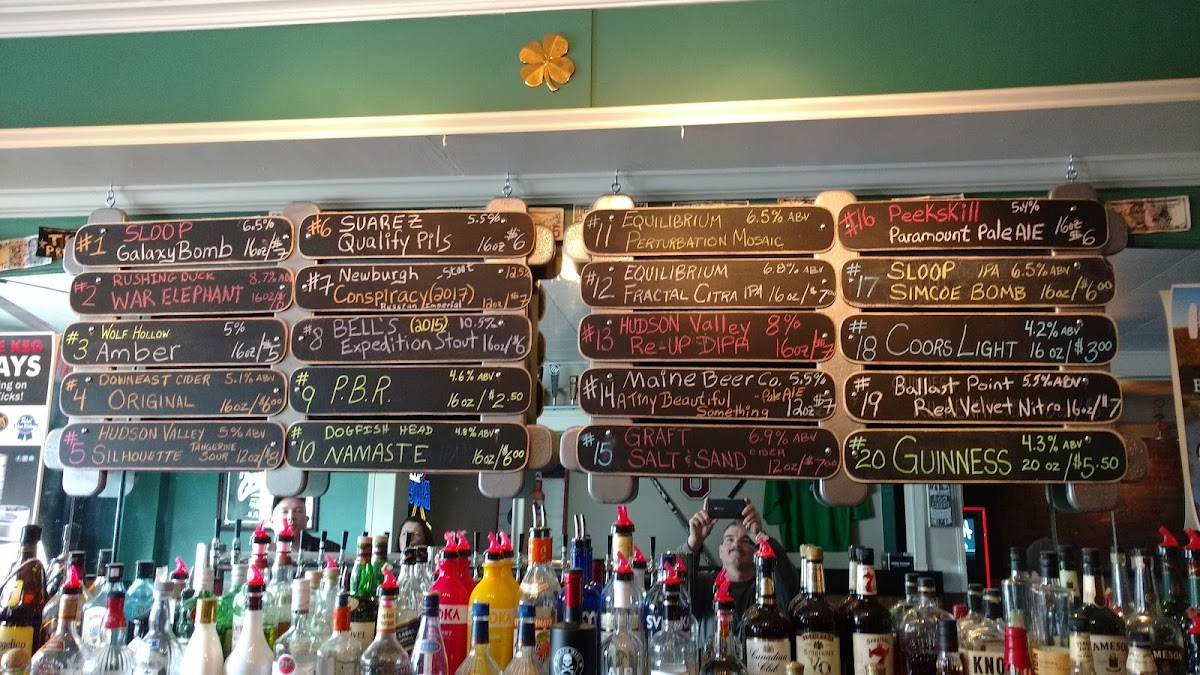 #1 SLOOP 6.5%
GalaxyBomb 16oz/$7
#2 RUSHING DUCK 8.7% ABV
WAR ELEPHANT 16oz/
#3 WOLF HOLLOW 5%
Amber 16oz/$5
#4 DOWNEAST CIDER 5.1% ABV
ORIGINAL 16oz/$6.00
#5 HUDSON VALLEY 5% ABV
SILHOUETTE TANGERINE SOUR 12oz/$8
#6 SUAREZ 5.5%
Quality Pils 16oz/$6
#7 Newburgh Stout 12.5%
Conspiracy (2017)
Russian Imperial 12oz/$7
#8 BELL'S (2015) 10.5%
Expedition Stout 16oz/$6
#9 P.B.R. 4.6% ABV
16oz/$2.50
#10 DOGFISH HEAD 4.8% ABV
NAMASTE 16oz/$6.00
#11 EQUILIBRIUM 6.5% ABV
PERTURBATION MOSAIC
#12 EQUILIBRIUM 6.8% ABV
FRACTAL CITRA IPA 16oz/$7.00
#13 HUDSON Valley 8%
Re-UP DIPA 16oz/$7
#14 Maine Beer Co. 5.5%
A Tiny Beautiful - Pale ALE
Something 12oz/$7
#15 GRAFT 6.9% ABV
SALT & SAND CIDER 12oz/$7.00
#16 PeekSKill 5.4%
Paramount Pale ALE 16oz/$6
#17 SLOOP IPA 6.5% ABV
SIMCOE BOMB 16oz/$6.00
#18 COORS LIGHT 4.2% ABV
16 oz/$3.00
#19 Ballast Point 5.5% ABV
Red Velvet Nitro 16oz/$7
#20 GUINNESS 4.3% ABV
20 oz/$5.50
Canadian Club
VO
KNO
JAMESON